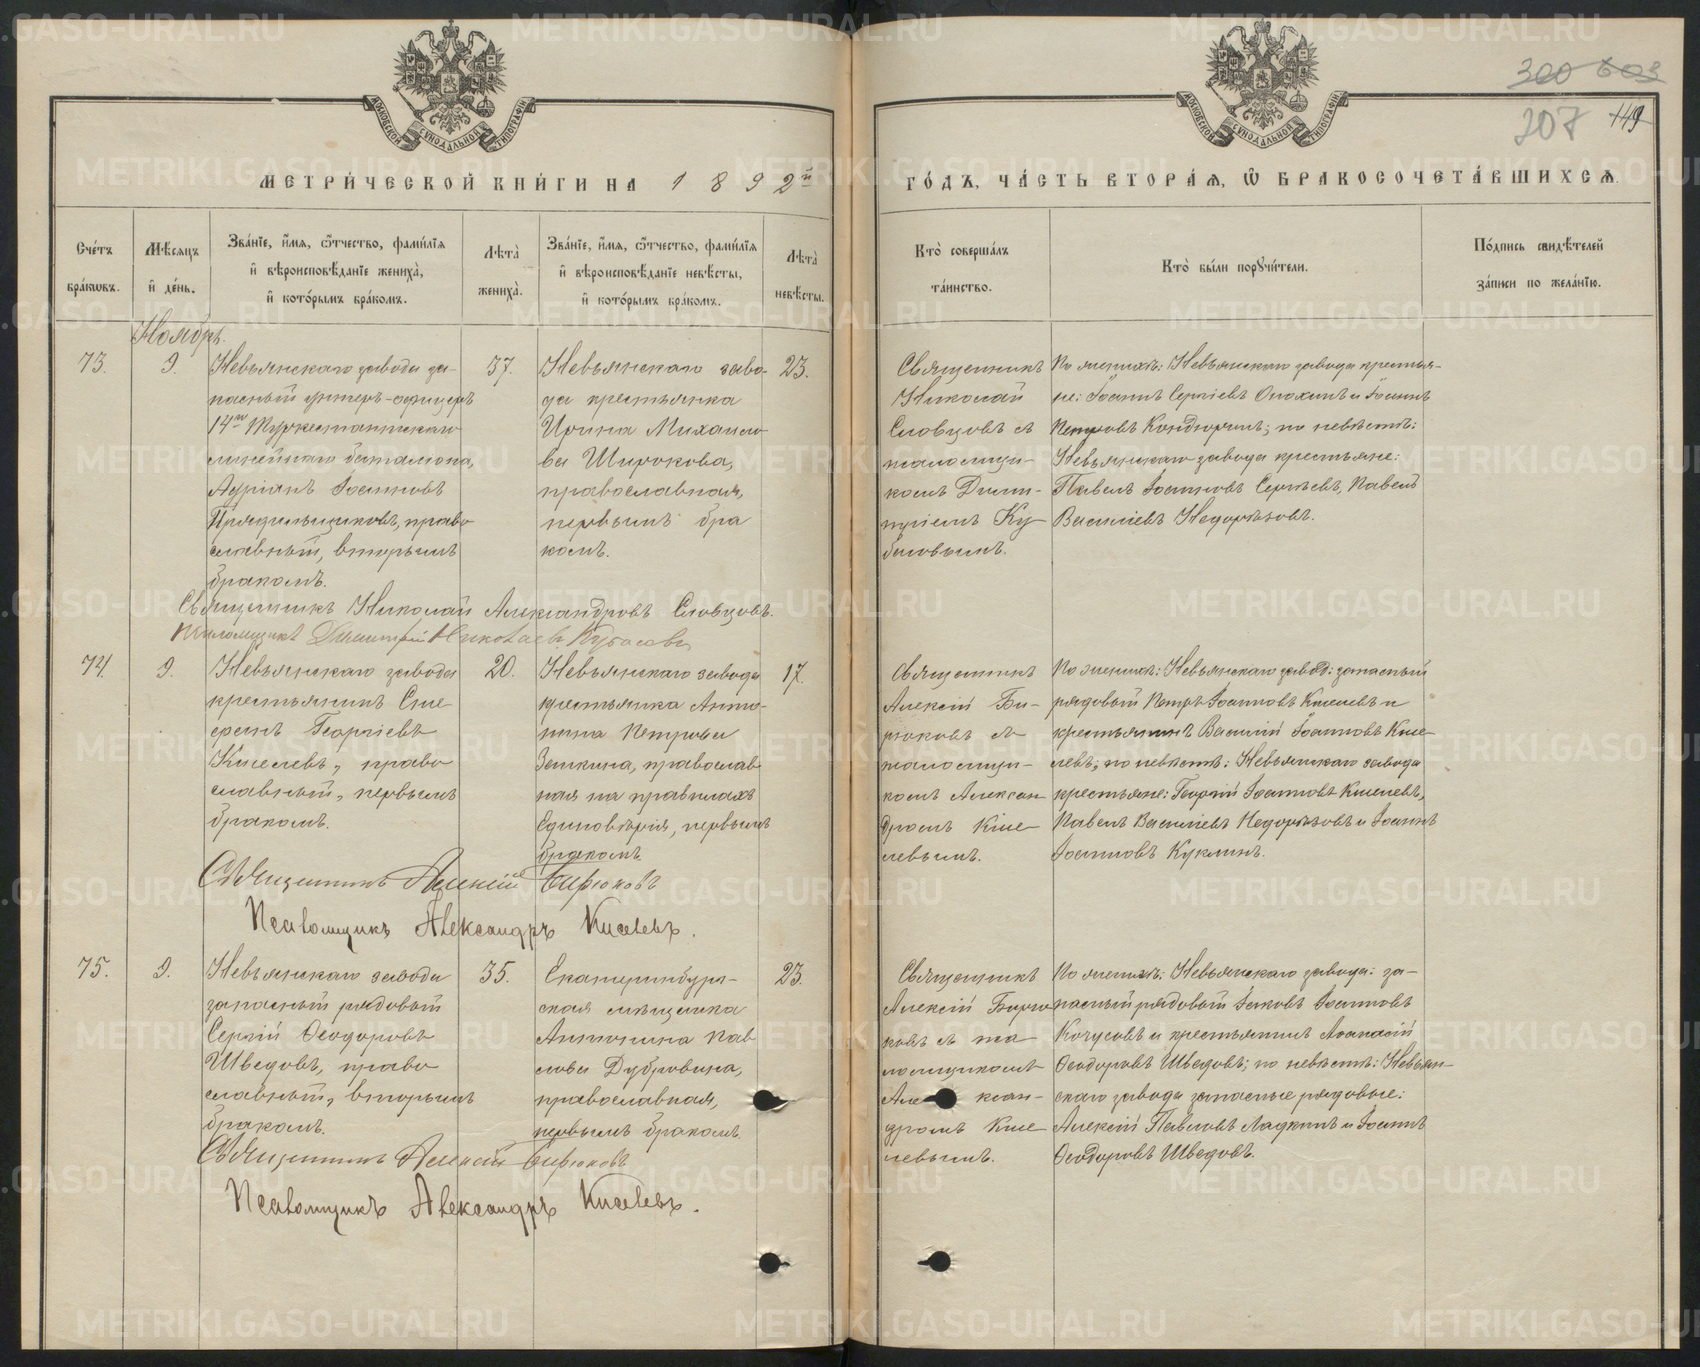 МЕТРИ́ЧЕСКОЙ КНИ́ГИ НА 1892й
ГО́ДЪ, ЧА́СТЬ ВТОРА́Я, Ѽ БРАКОСОЧЕТА́ВШИХСЯ.
300 603
207 149
МОСКОВСКОЙ СѴНОДАЛЬНОЙ ТИПОГРАФІИ
МОСКОВСКОЙ СѴНОДАЛЬНОЙ ТИПОГРАФІИ
Сче́тъ бра́кѡвъ.
Мѣ́сяцъ и҆ де́нь.
Зва́нїе, и҆́мя, ѻ҆́тчество, фами́лїя и҆ вѣроисповѣ́данїе жениха̀, и҆ кото́рымъ бра́комъ.
Лѣта̀ жениха̀.
Зва́нїе, и҆́мя, ѻ҆́тчество, фами́лїя и҆ вѣроисповѣ́данїе невѣ́сты, и҆ кото́рымъ бра́комъ.
Лѣта̀ невѣ́сты.
Кто̀ соверша́лъ та́инство.
Кто̀ бы́ли порꙋчи́тели.
По́дпись свидѣ́телей за́писи по жела́нїю.
Ноябрь.
73.
9.
Невьянскаго завода за-
пасный унтеръ-офицеръ
14го Туркестанскаго
линейнаго баталіона,
Адріанъ Іоанновъ
Прядильщиковъ, право
славный, вторымъ
бракомъ.
37.
Невьянскаго заво-
да крестьянка
Ирина Михаило
ва Широкова,
православная,
первымъ бра
комъ.
23.
Священникъ
Николай
Словцовъ съ
псаломщи-
комъ Дими-
тріемъ Ку
басовымъ.
По женихѣ: Невьянскаго завода крестья-
не: Іоаннъ Сергіевъ Опохинъ и Іоаннъ
Петровъ Кондюринъ; по невѣстѣ:
Невьянскаго завода крестьяне:
Павелъ Іоанновъ Сергѣевъ, Павелъ
Василіевъ Недорѣзовъ.
Священникъ Николай Александровъ Словцовъ.
Псаломщикъ Димитрій Николаевъ Кубасовъ
74.
9.
Невьянскаго завода
крестьянинъ Сте
фанъ Георгіевъ
Киселевъ, право
славный, первымъ
бракомъ.
20.
Невьянскаго завода
крестьянка Анто-
нина Петрова
Зенкина, православ
ная на правилахъ
Единовѣрія, первымъ
бракомъ.
17.
Священникъ
Алексій Би-
рюковъ съ
псаломщи-
комъ Алексан
дромъ Кисе-
левымъ.
По женихѣ: Невьянскаго завод: запасный
рядовый Петръ Іоанновъ Киселевъ и
крестьянинъ Василій Іоанновъ Кисе
левъ; по невѣстѣ: Невьянскаго завода
крестьяне: Георгій Іоанновъ Киселевъ,
Павелъ Василіевъ Недорѣзовъ и Іоаннъ
Іоанновъ Куклинъ.
Священникъ Алексій Бирюковъ
Псаломщикъ Александръ Киселевъ.
75.
9.
Невьянскаго завода
запасный рядовый
Сергій Ѳеодоровъ
Шведовъ, право
славный, вторымъ
бракомъ.
35.
Екатеринбург-
ская мѣщанка
Антонина Пав
лова Дубровина,
православная,
первымъ бракомъ.
23.
Священникъ
Алексій Бирю
ковъ съ пса
ломщикомъ
Алексан-
дромъ Кисе
левымъ.
По женихѣ: Невьянскаго завода: за-
пасный рядовый Іаковъ Іоанновъ
Кочусовъ и крестьянинъ Аѳанасій
Ѳеодоровъ Шведовъ; по невѣстѣ: Невьян-
скаго завода запасные рядовые:
Алексій Павловъ Ладкинъ и Іоаннъ
Ѳеодоровъ Шведовъ.
Священникъ Алексій Бирюковъ
Псаломщикъ Александръ Киселевъ.
METRIKI.GASO-URAL.RU